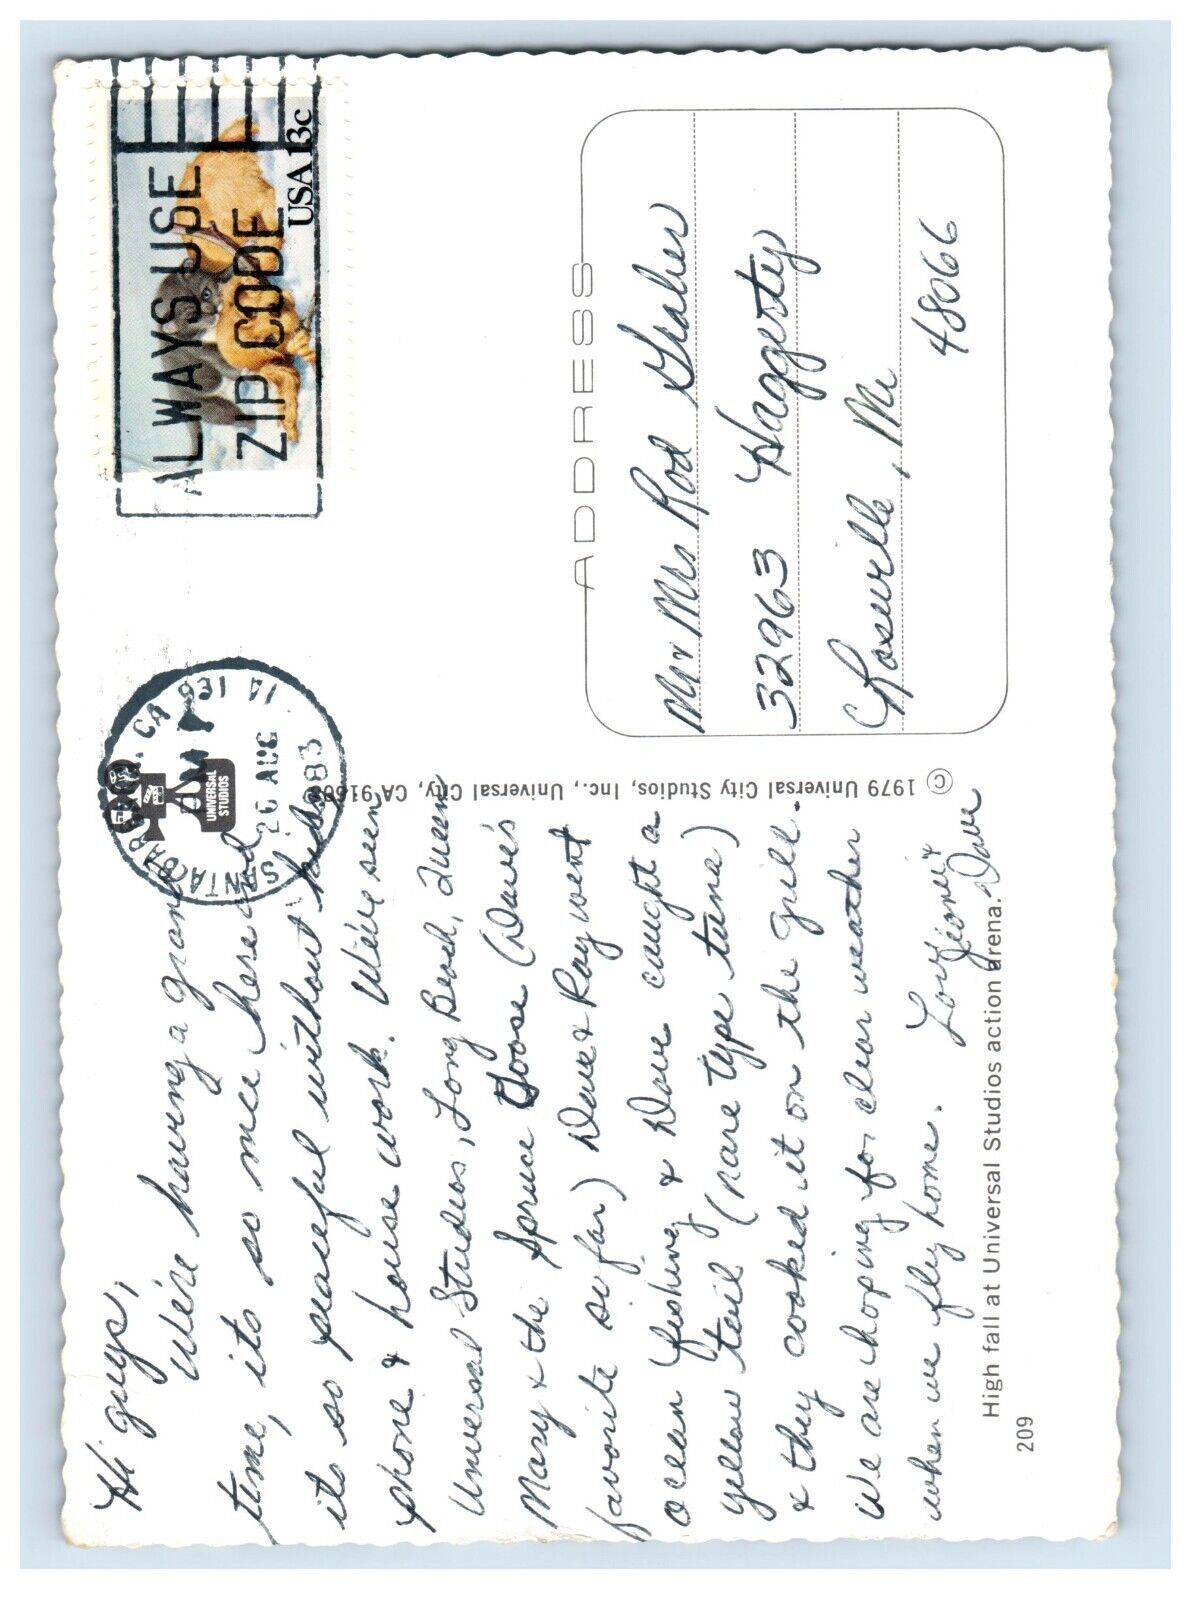 Hi guys,
We're having a grand
time, it's so nice here and
its so peaceful without kids
phone & house work. We've seen
Universal Studios, Long Beach, Queen
Mary & the Spruce Goose (Dave's
favorite so far) Dave & Ray went
ocean fishing & Dave caught a
yellow tail (rare type tuna)
& they cooked it on the grill.
We are hoping for clear weather
when we fly home.
Love Jeonie &
Dave
High fall at Universal Studios action arena.
209
© 1979 Universal City Studios, Inc., Universal City, CA 91608
UNIVERSAL
STUDIOS
SANTA BARBARA, CA
PM
26 AUG
1983
ALWAYS USE
ZIP CODE
USA 13c
ADDRESS
Mr Mrs Rod
32963 Haggerty
Roseville, Mi
48066